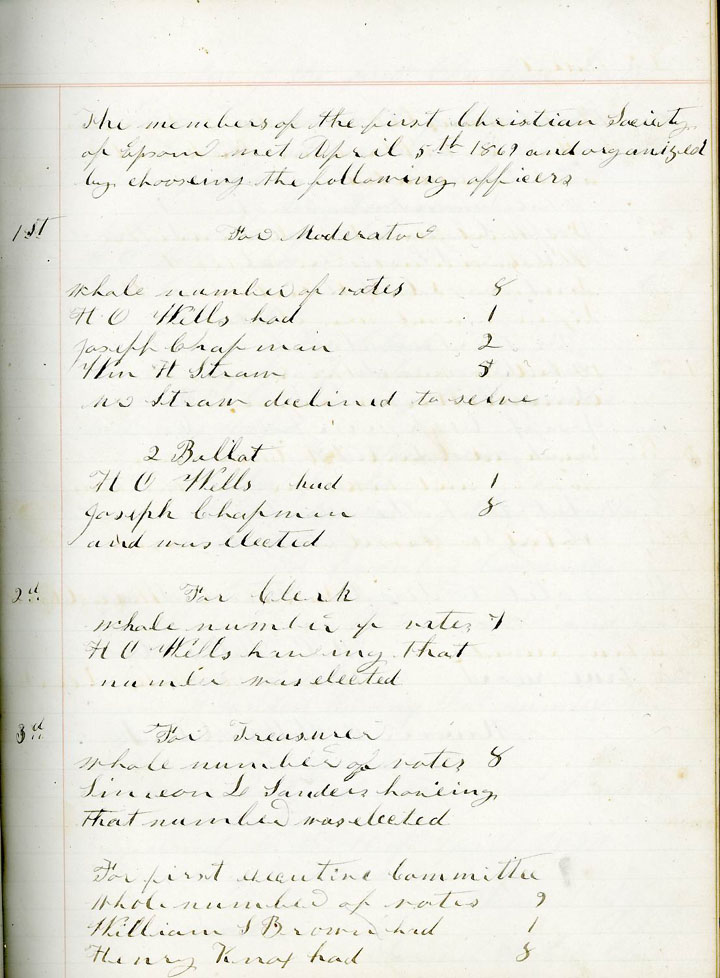 The members of the first Christian Society
of Epsom met April 5th 1869 and organized
by chooseing the following officers
1st For Moderator
whole number of votes 8
H O Wills had 1
Joseph Chapman 2
Wm H Straw 5
Mr Straw declined to serve
2 Ballot
H O Wills had 1
Joseph Chapman 8
and was elected
2d For Clerk
whole number of votes 7
H O Wills haveing that
number was elected
3d For Treasurer
whole number of votes 8
Simeon L Sanders haveing
that number was elected
For first executive Committee
whole number of votes 9
William S Brown had 1
Henry Knox had 8